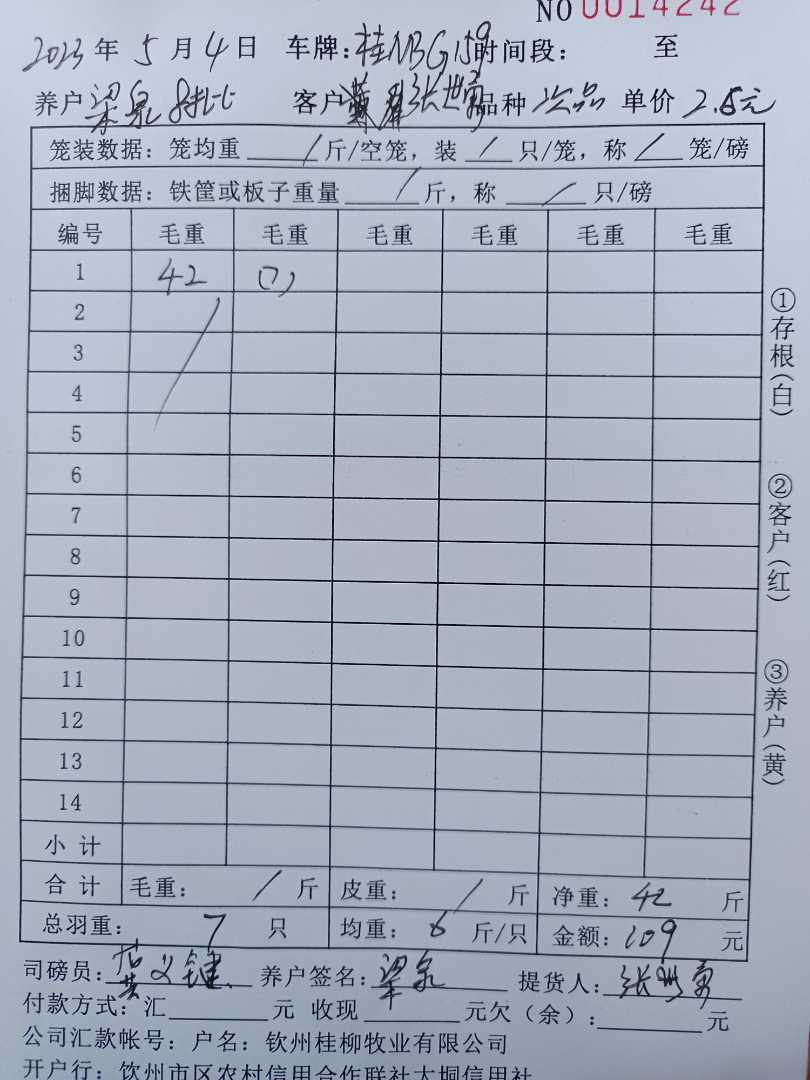 NO 0014242
2023年5月4日 车牌:桂NBG159 时间段: 至
养户 梁泉 客户 张世勇 品种 次品 单价 2.6元
笼装数据: 笼均重 / 斤/空笼, 装 / 只/笼, 称 / 笼/磅
捆脚数据: 铁筐或板子重量 / 斤, 称 / 只/磅
编号 毛重 毛重 毛重 毛重 毛重 毛重
1 42 (7)
2
3
4
5
6
7
8
9
10
11
12
13
14
小计
合计 毛重: / 斤 皮重: / 斤 净重: 42 斤
总羽重: 7 只 均重: 6 斤/只 金额: 109 元
司磅员: 养户签名: 梁泉 提货人: 张世勇
付款方式: 汇 元 收现 元欠(余): 元
公司汇款帐号: 户名: 钦州桂柳牧业有限公司
开户行: 钦州市区农村信用合作联社大垌信用社
①存根(白)
②客户(红)
③养户(黄)